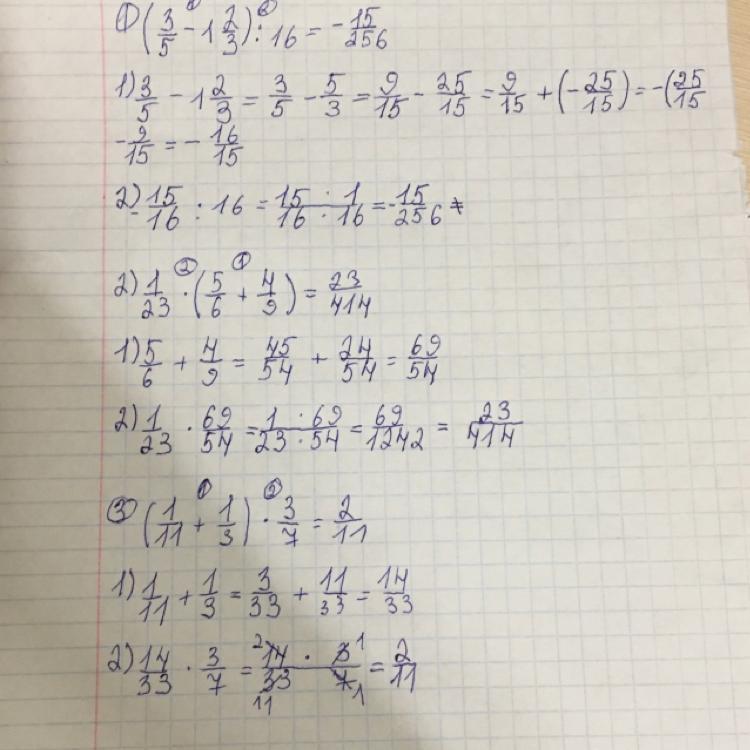 ① (3/5 - 1 2/3) : 16 = - 15/256
1) 3/5 - 1 2/3 = 3/5 - 5/3 = 9/15 - 25/15 = 9/15 + (- 25/15) = -(25/15
- 9/15 = - 16/15
2) - 15/16 : 16 = 15 · 1/16 · 16 = - 15/256
2) 1/23 · (5/6 + 4/9) = 23/414
1) 5/6 + 4/9 = 45/54 + 24/54 = 69/54
2) 1/23 · 69/54 = 1 · 69/23 · 54 = 69/1242 = 23/414
③ (1/11 + 1/3) · 3/7 = 2/11
1) 1/11 + 1/3 = 3/33 + 11/33 = 14/33
2) 14/33 · 3/7 = 14 · 3/33 7 = 2/11